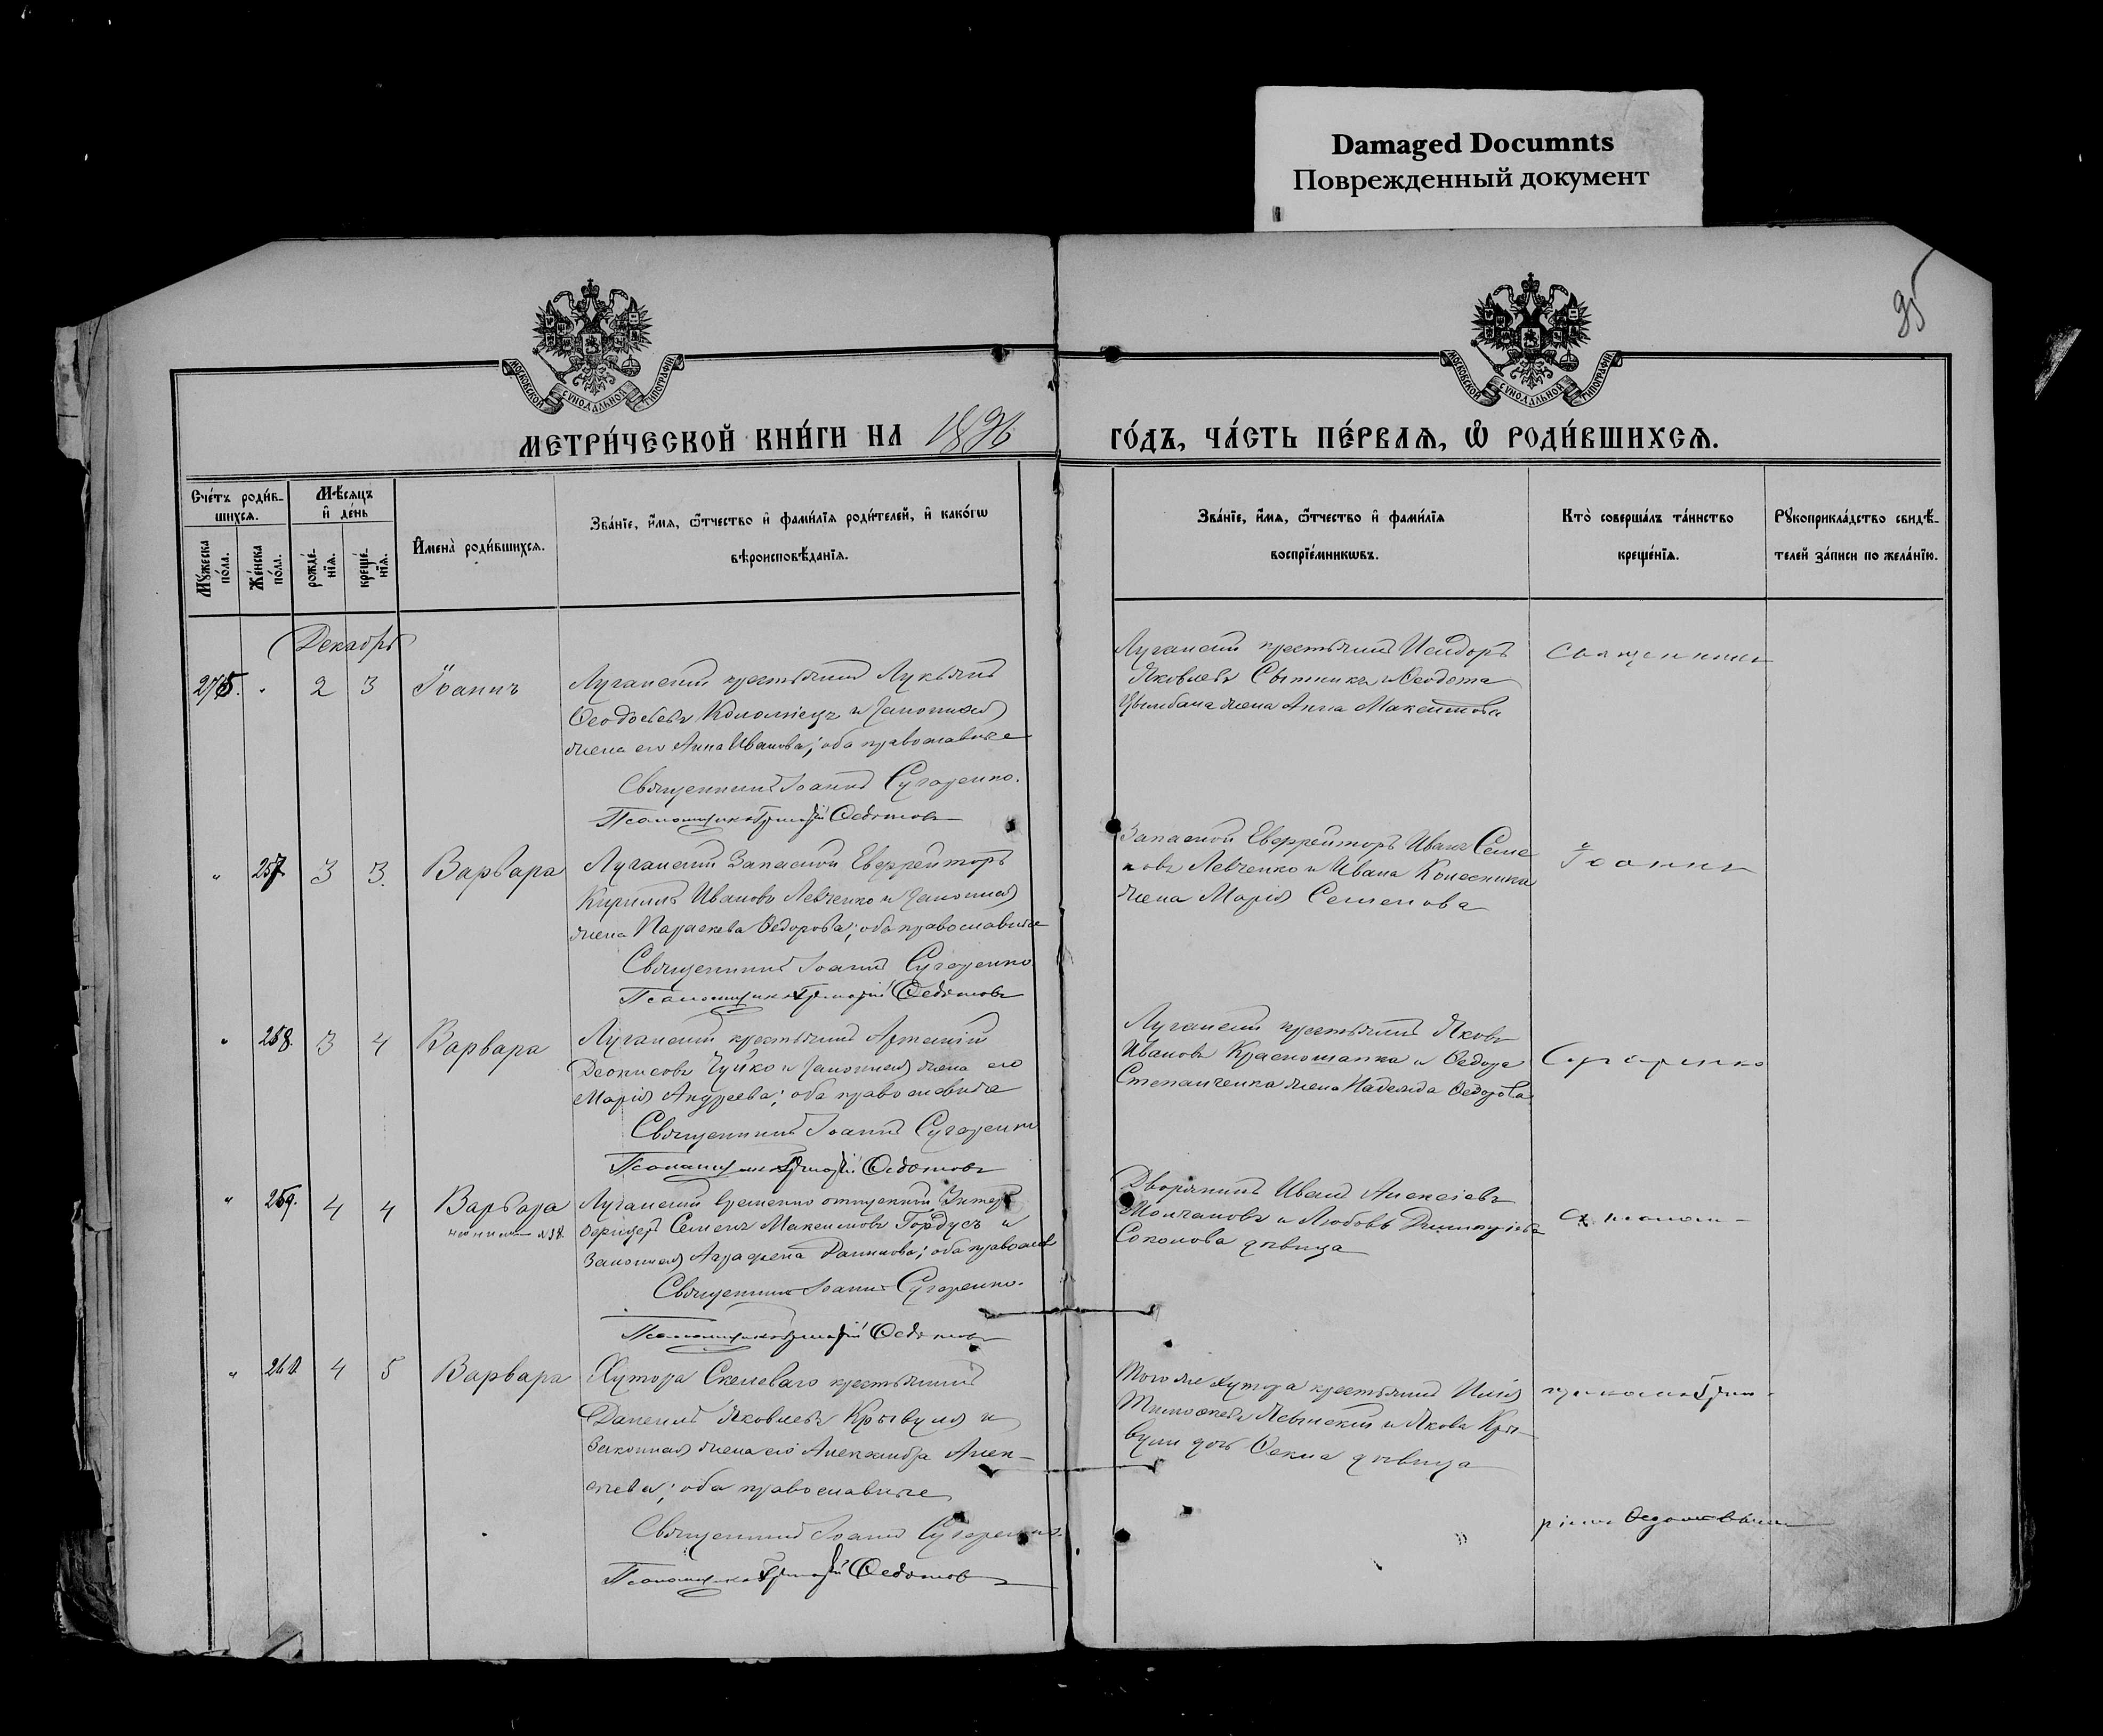 Damaged Documnts
Поврежденный документ
95
МОСКОВСКОЙ СѴНОДАЛЬНОЙ ТИПОГРАФІИ
МОСКОВСКОЙ СѴНОДАЛЬНОЙ ТИПОГРАФІИ
МЕТРИ́ЧЕСКОЙ КНИ́ГИ НА 1896
ГО́ДЪ, ЧА́СТЬ ПЕ́РВАѦ, Ѽ РОДИ́ВШИХСѦ.
Сче́тъ роди́в-
шихсѧ.
Мѣ́сѧцъ
и҆ де́нь
Мꙋ́жеска
по́ла.
Же́нска
по́ла.
рожде́-
нїѧ.
креще́-
нїѧ.
И҆мена̀ роди́вшихсѧ.
Зва́нїе, и҆́мѧ, ѻ҆́тчество и҆ фами́лїѧ роди́телей, и҆ како́гѡ
вѣроисповѣ́данїѧ.
Зва́нїе, и҆́мѧ, ѻ҆́тчество и҆ фами́лїѧ
воспрїе́мникѡвъ.
Кто̀ соверша́лъ та́инство
креще́нїѧ.
Рꙋкоприкла́дство свидѣ́-
телей за́писи по жела́нїю.
Декабрь
275. " 2 3 Іоаннъ
Луганскій крестьянинъ Лукьянъ
Феодосьевъ Коломіецъ и законная
жена его Анна Иванова; оба православные
Священникъ Іоаннъ Сугаренко.
Псаломщикъ Григорій Федотовъ
Луганскій крестьянинъ Исидоръ
Яковлевъ Сытникъ и Феодота
Цымбала жена Анна Максимова
Священникъ
" 257 3 3. Варвара
Луганскій Запасной Ефрейторъ
Кириллъ Ивановъ Левченко и законная
жена Параскева Федорова; оба православные
Священникъ Іоаннъ Сугаренко
Псаломщикъ Григорій Федотовъ
Запасной Ефрейторъ Иванъ Семе
новъ Левченко и Ивана Колесника
жена Марія Семенова
Іоаннъ
" 258. 3 4 Варвара
Луганскій крестьянинъ Артемій
Деонисовъ Чуйко и законная жена его
Марія Андреева; оба православные
Священникъ Іоаннъ Сугаренко
Псаломщикъ Григорій Федотовъ
Луганскій крестьянинъ Яковъ
Ивановъ Красношапка и Федора
Степанченка жена Надежда Федорова
Сугаренко
" 259. 4 4 Варвара
Луганскій временно отпускной Унтеръ
офицеръ Семенъ Максимовъ Гордусъ и
Законная Аграфена Данилова; оба правосл
Священникъ Іоаннъ Сугаренко.
Псаломщикъ Григорій Федотовъ
Дворянинъ Иванъ Алексіевъ
Молчановъ и Любовь Димитріева
Соколова дѣвица
съ псалом-
" 260. 4 5 Варвара
Хутора Скелеваго крестьянинъ
Даніилъ Яковлевъ Крывуля и
Законная жена его Александра Алек-
сѣева; оба православные
Священникъ Іоаннъ Сугаренко.
Псаломщикъ Григорій Федотовъ
Того же хутора крестьянинъ Илія
Тимофеевъ и Якова Кры-
вули дочь Фекла дѣвица
щикомъ Григо-
ріемъ Федотовымъ